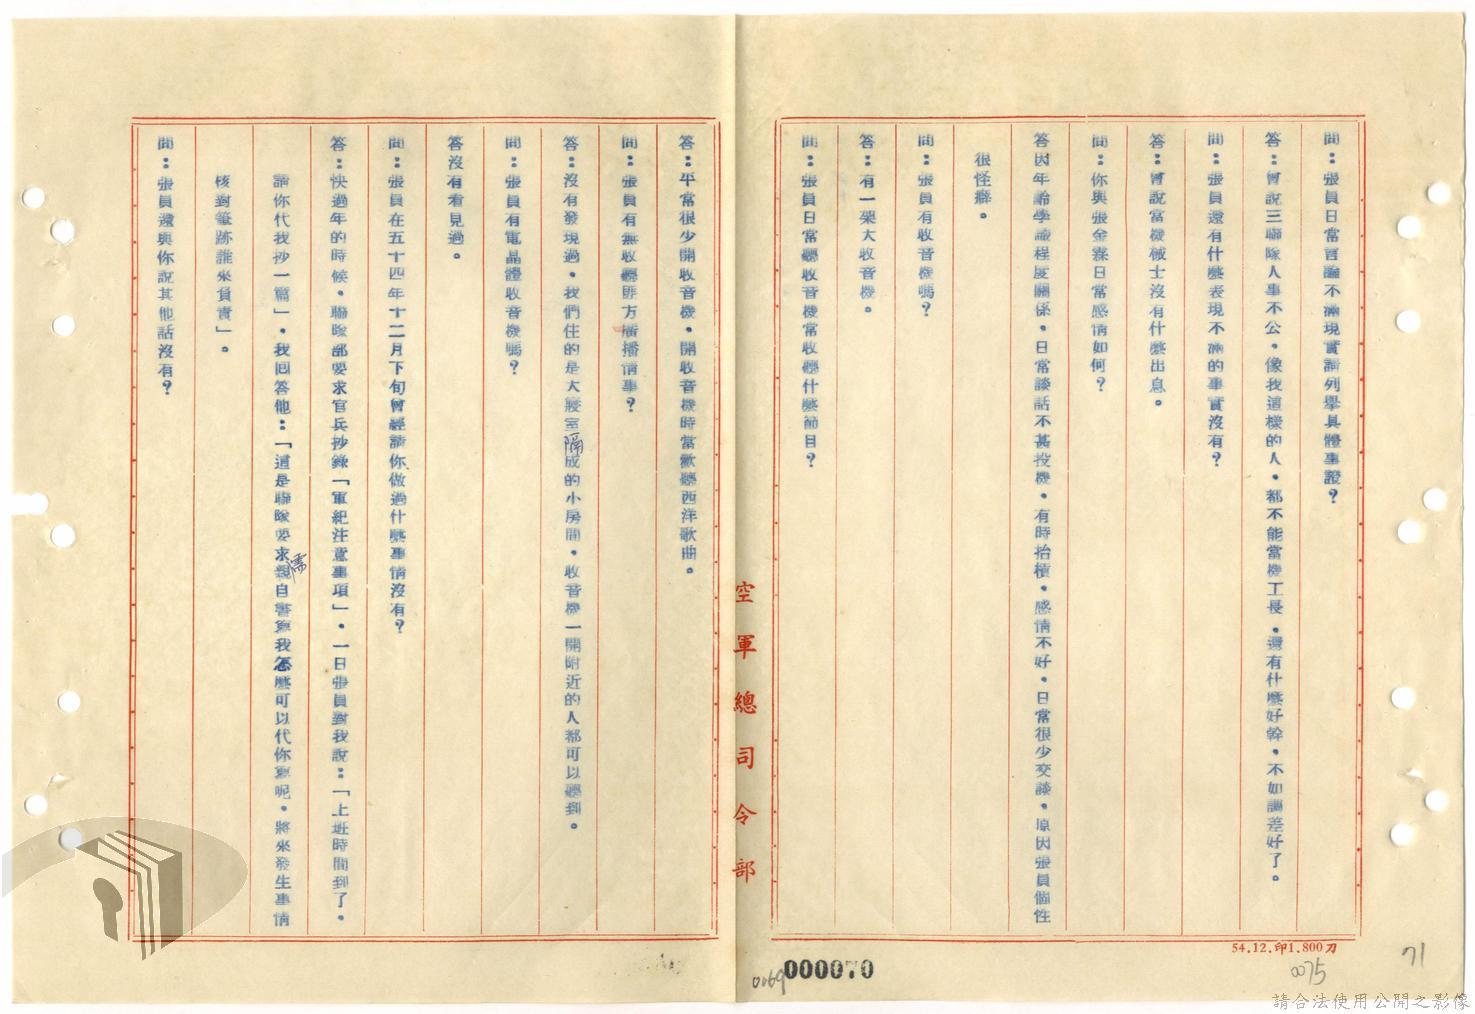 問：張員日常言論不滿現實請列舉具體事證？
答：曾說三聯隊人事不公，像我這樣的人，都不能當機工長，還有什麼好幹，不如調差好了。
問：張員還有什麼表現不滿的事實沒有？
答曾說當機械士沒有什麼出息。
問：你與張金霖日常感情如何？
答因年齡學識程度關係，日常談話不甚投機，有時抬槓，感情不好，日常很少交談，原因張員個性
很怪癖。
問：張員有收音機嗎？
答：有一架大收音機。
問：張員日常聽收音機常收聽什麼節目？
空軍總司令部
答：平常很少開收音機，開收音機時常歡聽西洋歌曲。
問：張員有無收聽匪方播播情事？
答：沒有發現過，我們住的是大寢室隔成的小房間，收音機一開附近的人都可以聽到。
問：張員有電晶體收音機嗎？
答沒有看見過。
問：張員在五十四年十二月下旬曾經請你做過什麼事情沒有？
答：快過年的時候，聯隊部要求官兵抄錄「軍紀注意事項」，一日張員對我說：「上班時間到了，
請你代我抄一篇」，我回答他：「這是聯隊要求需親自書寫我怎麼可以代你寫呢，將來發生事情
核對筆跡誰來負責」。
問：張員還與你說其他話沒有？
54.12.印1.800刀
0069
000070
0075
71
請合法使用公開之影像